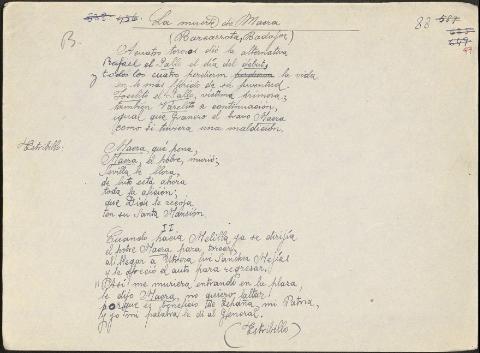 La muerte de Maera
88
B.
(Barcarrota, Badajoz)
A cuatro toreros dió la alternativa
Rafael el Gallo el día del debut,
y todos los cuatro perdieron la vida
en lo más florido de su juventud.
Joselito el Gallo, víctima primera;
también Varelito a continuación,
igual que Granero el bravo Maera
como si tuviera una maldición.
Estribillo.
Maera, qué pena,
Maera, el pobre, murió;
Sevilla le llora,
de luto está ahora
toda la afición;
que Dios le recoja
en su Santa Mansión.
II
Cuando hacia Melilla ya se dirigía
el pobre Maera para torear,
al llegar a Utrera vió Sánchez Mejías
y le ofreció el auto para regresar.
"Así me muriera entrando en la plaza,
le dijo Maera, no quiero faltar:
porque es beneficio de España, mi Patria,
y yo mi palabra le dí al General.
(Estribillo)